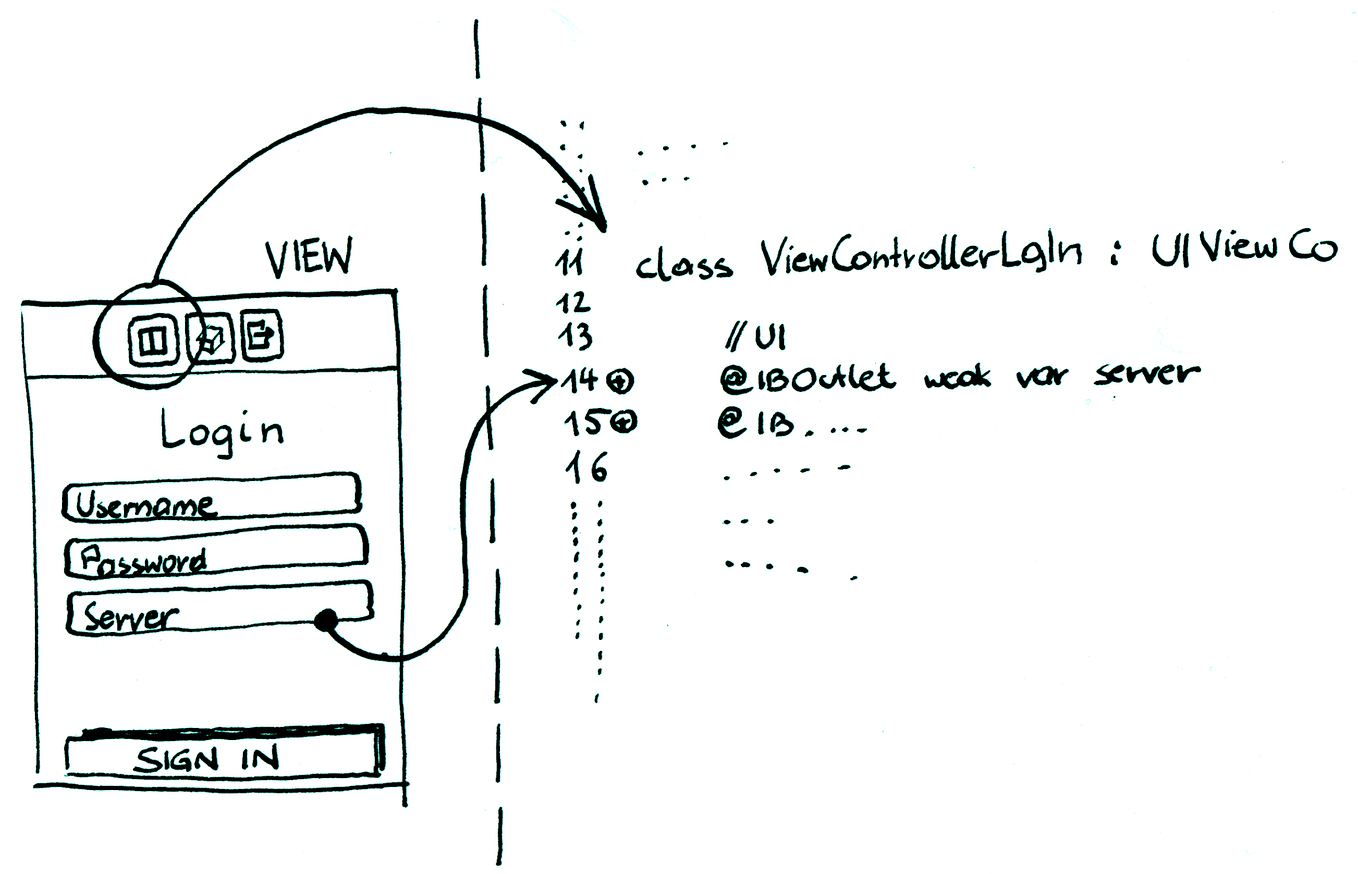 VIEW
Login
Username
Password
Server
SIGN IN
11 class ViewControllerLgIn : UIViewCo
12
13 // UI
14 @IBOutlet weak var server
15 @IB....
16